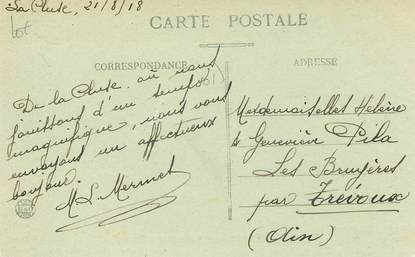 La Cluse, 21/8/18
lot
CARTE POSTALE
CORRESPONDANCE
ADRESSE
De la Cluse où nous
jouissons d'un temps
magnifique, nous vous
envoyons un affectueux
bonjour.
M L Mermet
Mesdemoiselles Helène
& Geneviève Pila
Les Bruyères
par Trévoux
(Ain)